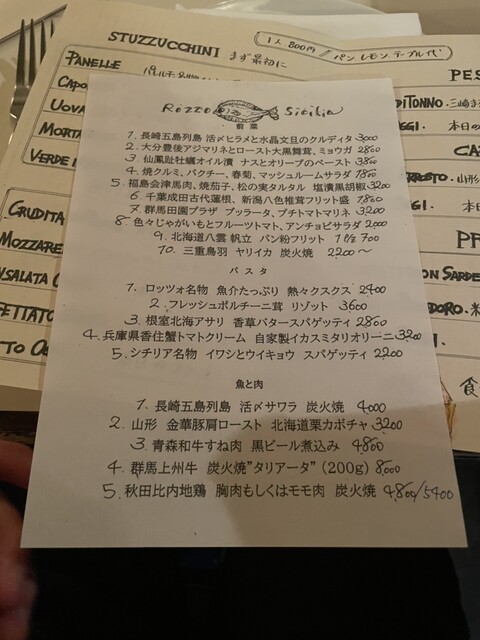 STUZZUCCHINI まず最初に
1人 800円 / パン レモン テーブル代
PANELLE
CAPO
UOVA
MORTA
VERDE
GRUDITA
MOZZARE
NSALATA
FETTATO
TTO
PES
DI TONNO. 三崎ま
GGI. 本日の
RROSTO. 山形
GGI. 本日の
PR
ON SARDE
DORO.
食
Rozzo Sicilia
前菜
1. 長崎五島列島 活〆ヒラメと水晶文旦のクルディタ 3000
2. 大分豊後アジマリネとロースト大黒舞茸、ミョウガ 2800
3. 仙鳳趾牡蠣オイル漬 ナスとオリーブのペースト 3800
4. 焼クルミ、パクチー、春菊、マッシュルームサラダ 1800
5. 福島会津馬肉、焼茄子、松の実タルタル 塩漬黒胡椒 3200
6. 千葉成田古代蓮根、新潟八色椎茸フリット盛 1800
7. 群馬田園プラザ ブッラータ、プチトマトマリネ 3200
8. 色々じゃがいもとフルーツトマト、アンチョビサラダ 2000
9. 北海道八雲 帆立 パン粉フリット 1P/2 700
10. 三重鳥羽 ヤリイカ 炭火焼 2200～
パスタ
1. ロッツォ名物 魚介たっぷり 熱々クスクス 2400
2. フレッシュポルチーニ茸 リゾット 3600
3. 根室北海アサリ 香草バタースパゲッティ 2800
4. 兵庫県香住蟹トマトクリーム 自家製イカスミタリオリーニ 3200
5. シチリア名物 イワシとウイキョウ スパゲッティ 2200
魚と肉
1. 長崎五島列島 活〆サワラ 炭火焼 4000
2. 山形 金華豚肩ロースト 北海道栗カボチャ 3200
3. 青森和牛すね肉 黒ビール煮込み 4800
4. 群馬上州牛 炭火焼"タリアータ" (200g) 8000
5. 秋田比内地鶏 胸肉もしくはモモ肉 炭火焼 4800/5400